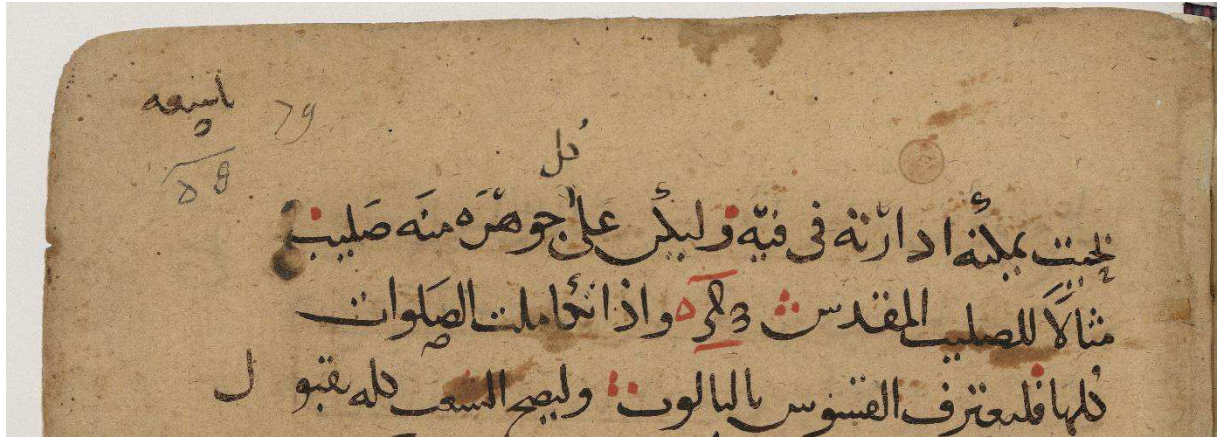 تاسعه
79
كل
بحيث يمكنه ادارته في فيه وليكن على جوهره منه صليب
مثالاً للصليب المقدس واذا تكاملت الصلوات
كلها فليعترف القسوس بالبالوت وليصح الشعب كله بقبول